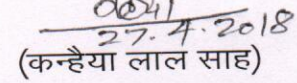 27.4.2018
(कन्हैया लाल साह)